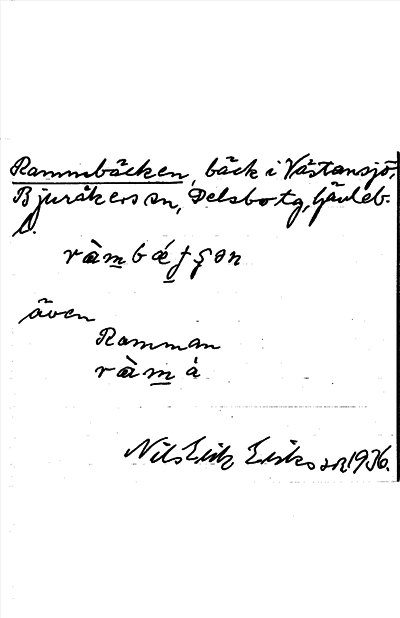 Rammbäcken, bäck i Västansjö,
Bjuråkers sn, Delsbo tg, Gävleb.
l.
ràm̲bǽʈʂən
även
Ramman
ràm̲á
Nils Erik Eriksson 1936.